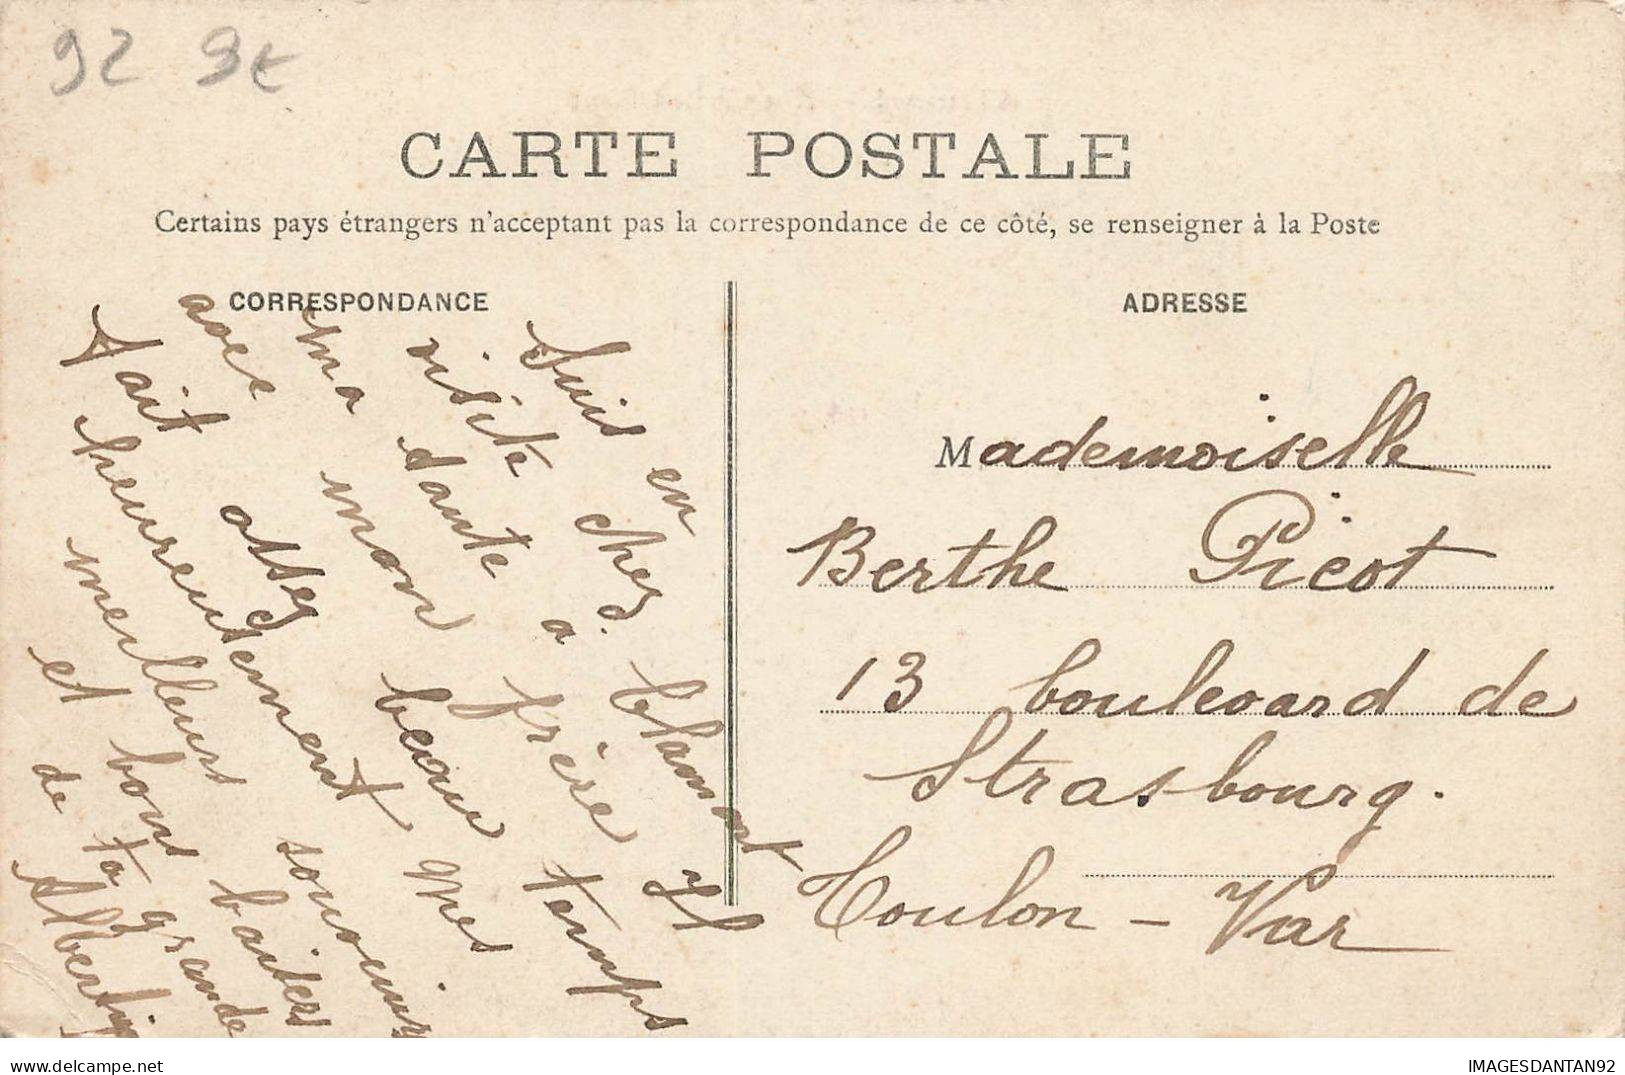 92 3€
CARTE POSTALE
Certains pays étrangers n'acceptant pas la correspondance de ce côté, se renseigner à la Poste
CORRESPONDANCE
Suis en
visite chez.
ma tante a Clamart
avec mon frère Il
fait assez beau temps
heureusement mes
meilleurs souvenirs
et bons baisers
de ta grande
Albertine
ADRESSE
Mademoiselle
Berthe Picot
13 boulevard de
Strasbourg.
Toulon - Var
delcampe.net
IMAGESDANTAN92